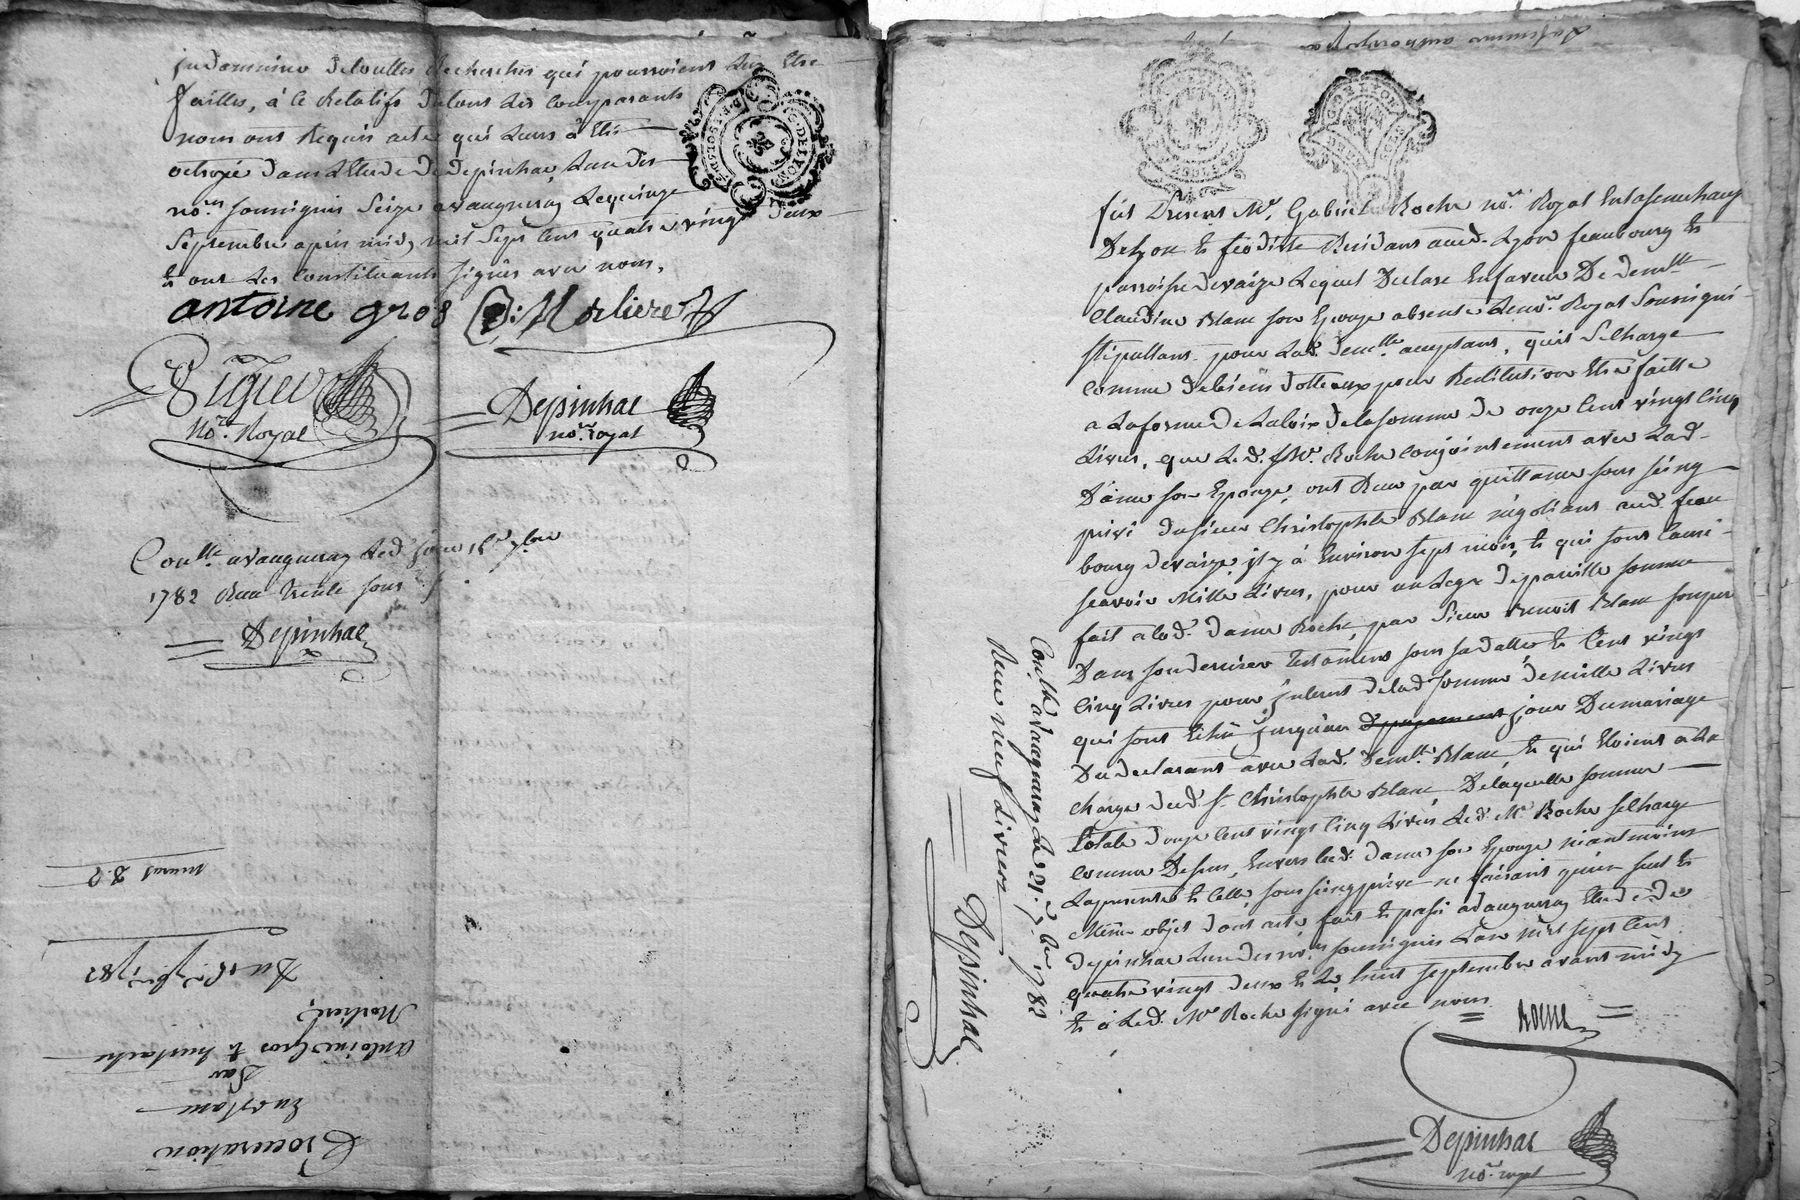 indamnine de toutes Recherches qui pourroient leur Etre
faittes, à ce Relatifs dont les comparants
nous ont Requis acte qui leurs à Eté
octroyé dans L'Etude de depinhac L'un des
no.res soussignés Seize a vaugneray Le quinze
Septembre après midy mil Sept Cent quatre vingt deux
Et ont Les Constituants signés avec nous.
antoine gros E: Morliere
no.re Royal
Depinhac
no.re royal
Con.lle a vaugneray Led. jour 15e 7bre
1782 Reçu trente sous
Depinhac
Procuration
En estant
Par
Antoine Gros Et heustache
Morliere
Du 15 7bre 1782
C. DE LYON
fut Present Me. Gabriel Roche no.re Royal En la senechaussée
De Lyon Et Residant aud. Lyon feaubourg Et
parroisse de vaize Lequel Declare En faveur De dem.lle
Claudine Blanc son Epouze absente Le no.re Royal soussigné
stipullant pour Lad. dem.lle acceptant, qu'il se Charge
comme de biens dotteaux pour Restitution Etre faitte
a La forme de La loix de la somme de onze Cent vingt Cinq
Livres, que Led. Sr. Me. Roche conjointement avec Lad.
Dame son Epouze, ont Reçu par quittance sous seing
privé du sieur Christophle Blanc négotiant aud. feau
bourg de vaize il y à Environ sept mois, Et qui sont Cauzé
scavoir Mille Livres, pour un Legs de pareille somme
fait a lad. dame Roche, par Sieur Benoit Blanc son pere
Dans son dernier Testament sous sa datte Et Cent vingt
Cinq Livres pour interet de lad. somme de mille Livres
qui sont Echu jusqu'au jour Du mariage
Du declarant avec Lad. dem.lle Blanc Et qui Etoient a La
charge dud. Sr. Christophle Blanc De laquelle somme
totale d'onze Cent vingt Cinq Livres Led. Me Roche se Charge
comme Dessus, Envers lad. dame son Epouze néantmoins
La presente Et Celle sous seing privé ne faisant qu'un seul Et
Même objet dont acte fait Et passé a vaugneray Etude de
depinhac L'un des no.res soussignés L'an mil sept Cent
quatre vingt deux Et Le huit septembre avant midy
Et à Led. Me Roche signé avec nous
Roche
Depinhac
no.re royal
Con.lle a vaugneray Le 21. 7bre 1782
Reçu neuf Livres
Depinhac